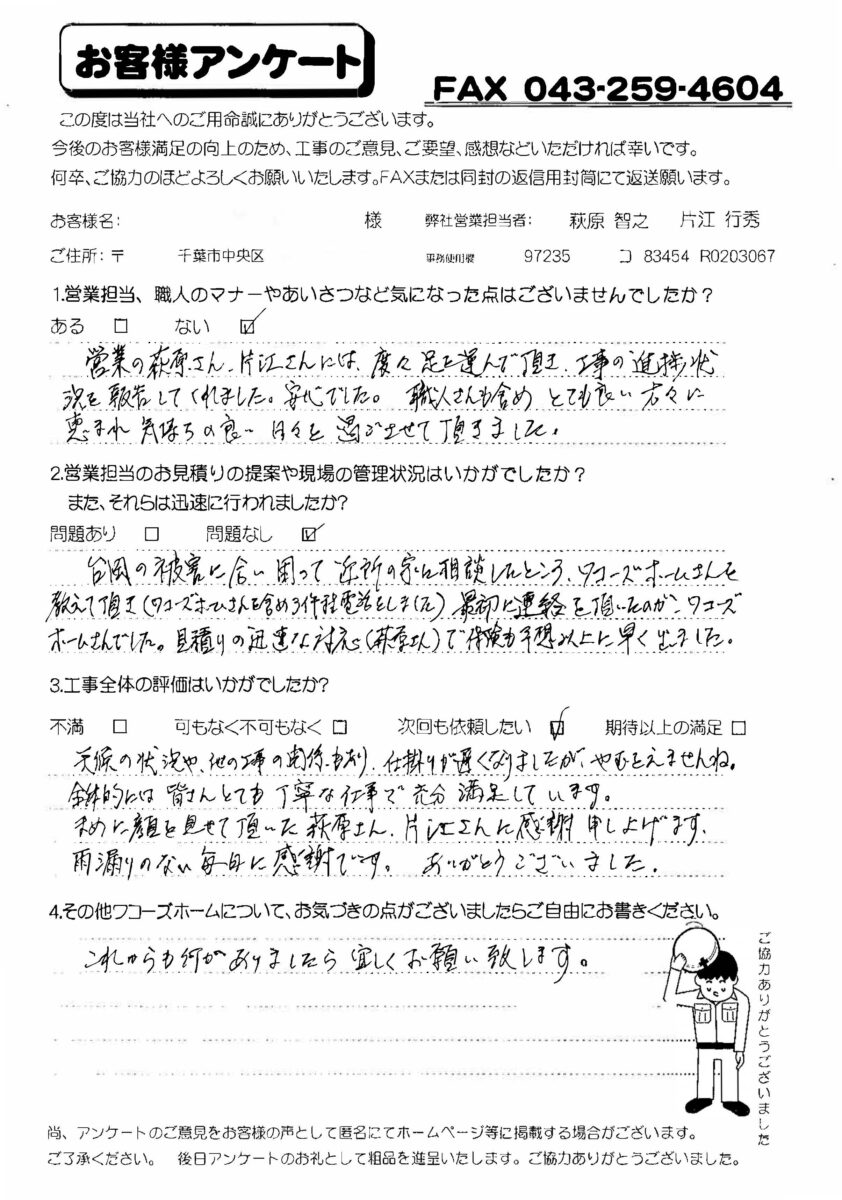 お客様アンケート
FAX 043-259-4604
この度は当社へのご用命誠にありがとうございます。
今後のお客様満足の向上のため、工事のご意見、ご要望、感想などいただければ幸いです。
何卒、ご協力のほどよろしくお願いいたします。FAXまたは同封の返信用封筒にて返送願います。
お客様名: 様 弊社営業担当者: 萩原 智之 片江 行秀
ご住所:〒 千葉市中央区 事務使用欄 97235 コ 83454 R0203067
1.営業担当、職人のマナーやあいさつなど気になった点はございませんでしたか?
ある □ ない ☑
営業の萩原さん、片江さんには、度々足を運んで頂き、工事の進捗状
況を報告してくれました。安心でした。職人さんも含めとても良い方々に
恵まれ気持ちの良い日々を過ごさせて頂きました。
2.営業担当のお見積りの提案や現場の管理状況はいかがでしたか?
また、それらは迅速に行われましたか?
問題あり □ 問題なし ☑
台風の被害に合い困って近所の家に相談したところ、ワコーズホームさんを
教えて頂き(ワコーズホームさんを含め3件程電話をしました)最初に連絡を頂いたのがワコーズ
ホームさんでした。見積りの迅速な対応(萩原さん)で保険も予想以上に早く出ました。
3.工事全体の評価はいかがでしたか?
不満 □ 可もなく不可もなく □ 次回も依頼したい ☑ 期待以上の満足 □
天候の状況や、他の工事の関係もあり、仕掛りが遅くなりましたが、やむをえませんね。
全体的には皆さんとても丁寧な仕事で充分満足しています。
まめに顔を見せて頂いた萩原さん、片江さんに感謝申し上げます、
雨漏りのない毎日に感謝です。ありがとうございました。
4.その他ワコーズホームについて、お気づきの点がございましたらご自由にお書きください。
これからも何かありましたら宜しくお願い致します。
ご協力ありがとうございました
尚、アンケートのご意見をお客様の声として匿名にてホームページ等に掲載する場合がございます。
ご了承ください。 後日アンケートのお礼として粗品を進呈いたします。ご協力ありがとうございました。